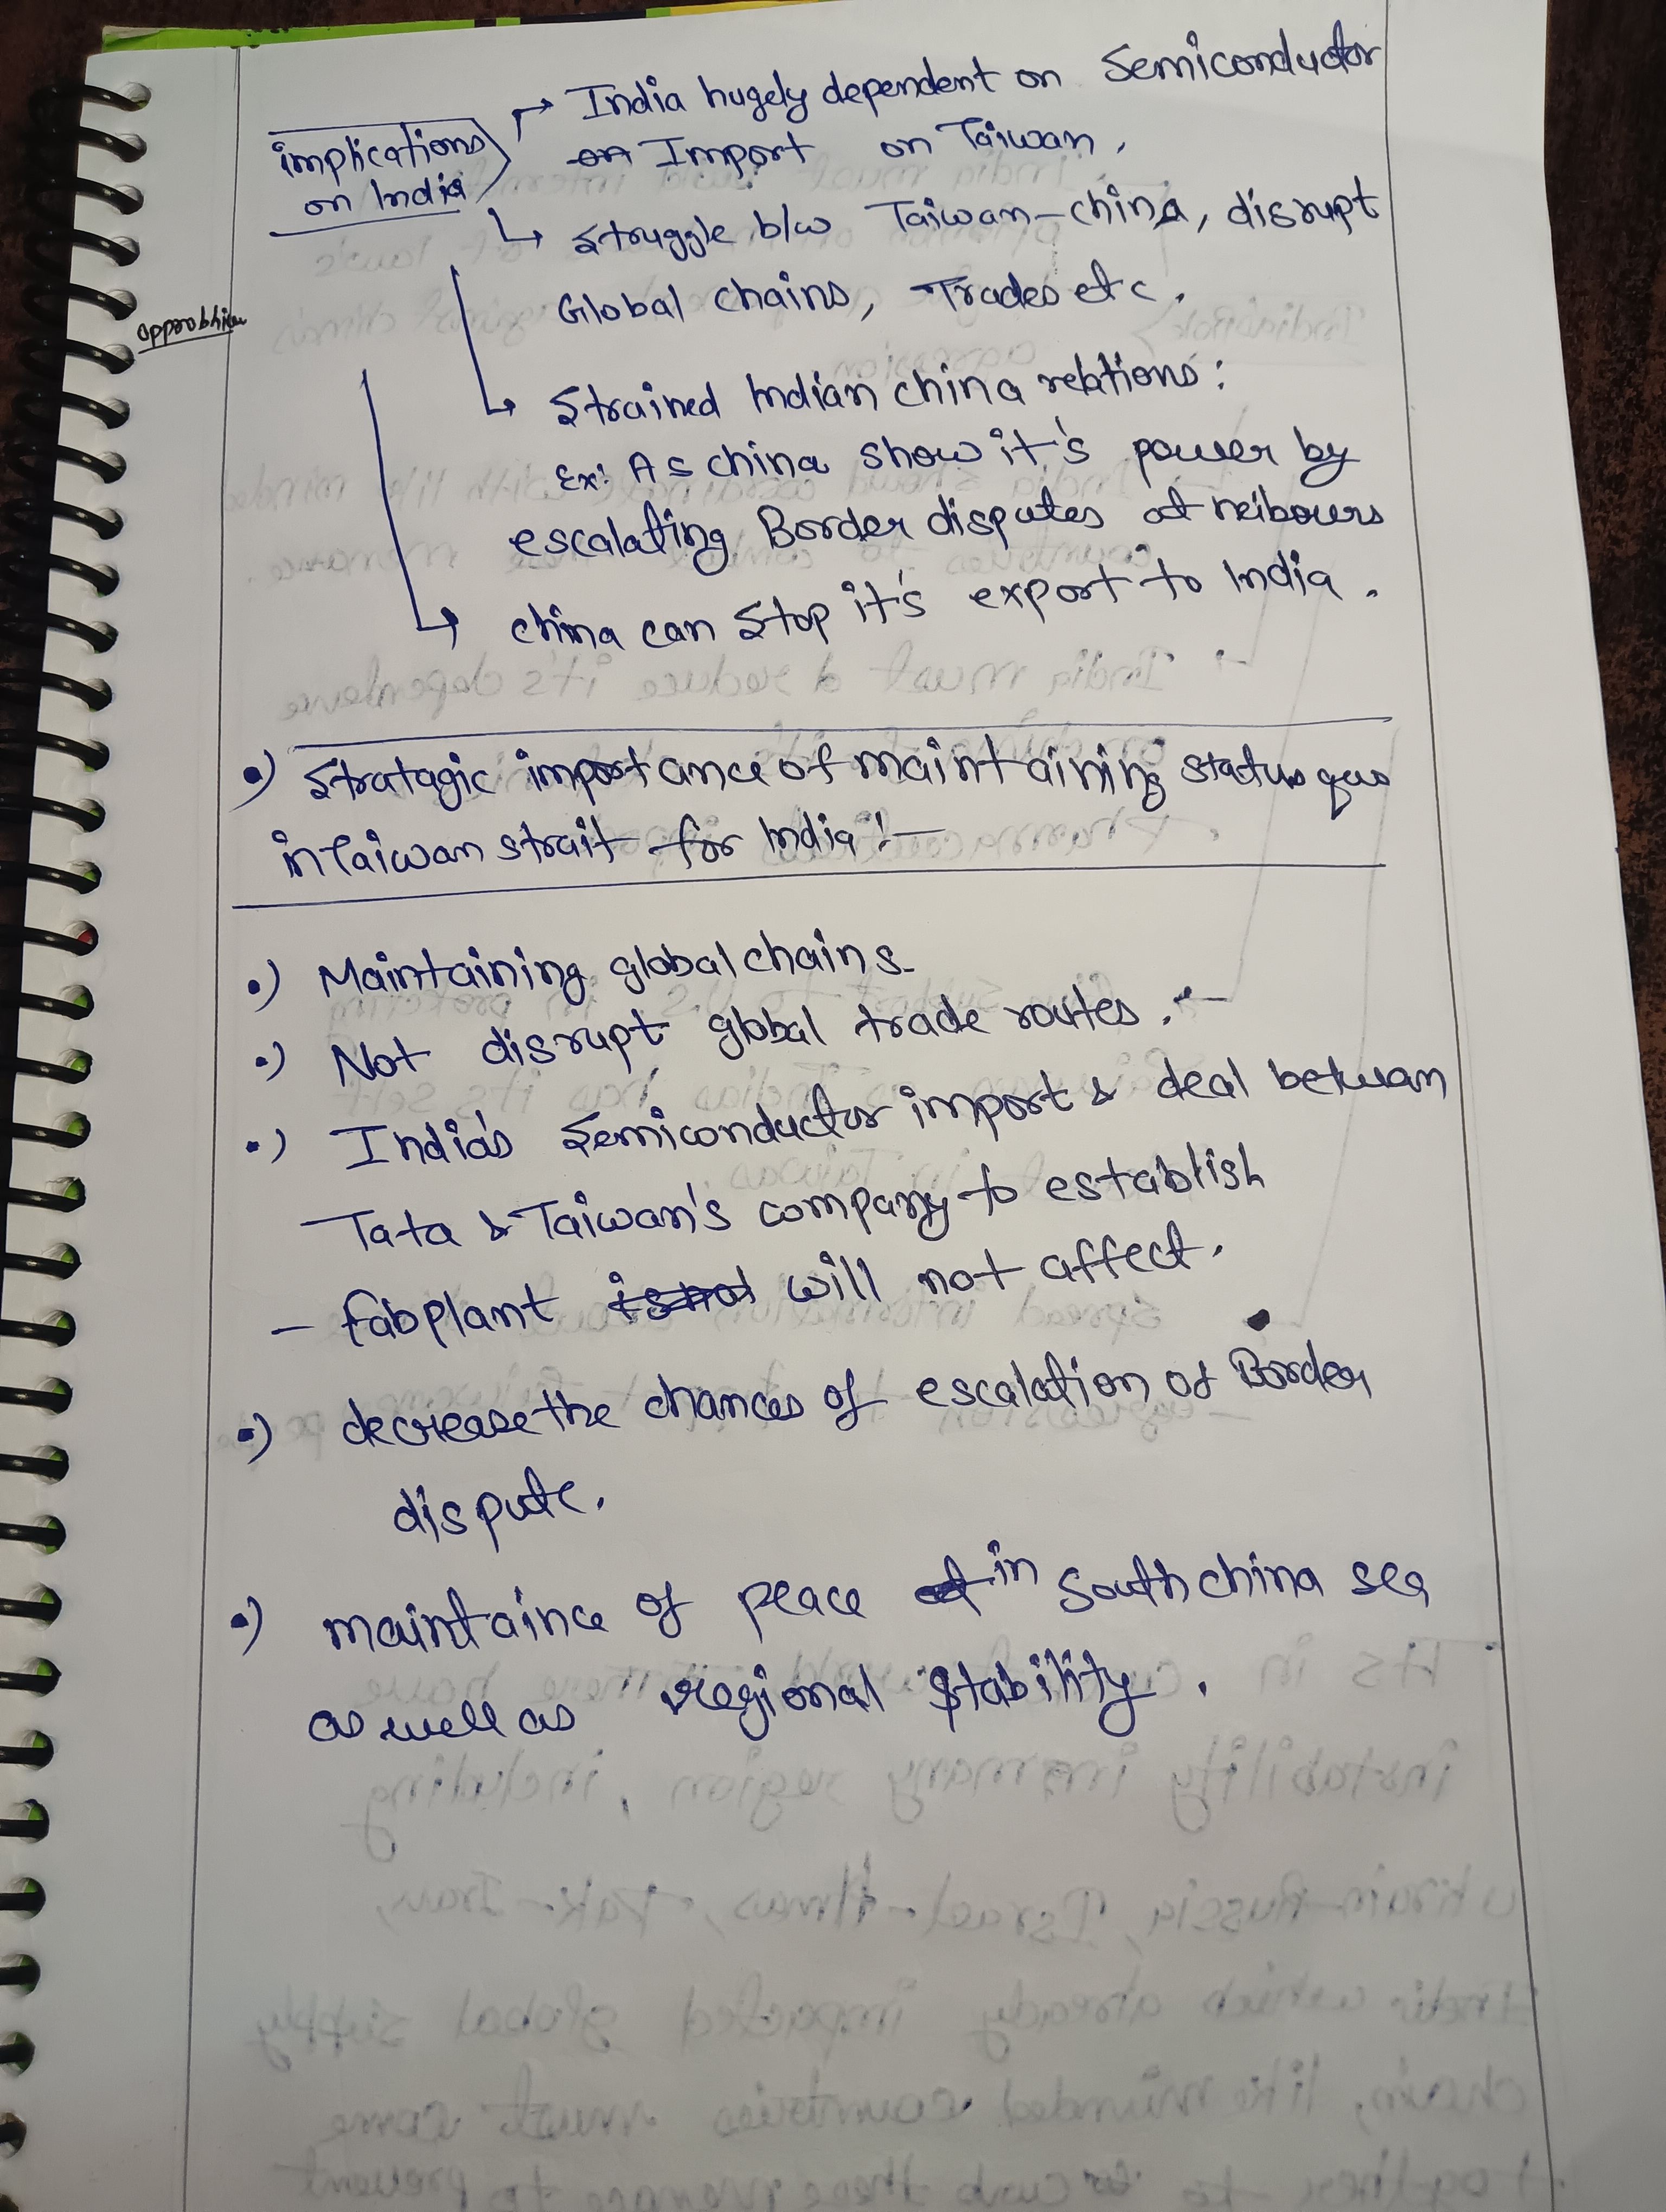 India hugely dependent on Semiconductor
implications on Import on Taiwan.
on India
Struggle b/w Taiwan-china, disrupt
Global chains, Trades etc.
Strained Indian china relations:
Ex: As china show it's power by
escalating Border disputes at neibours
china can Stop it's export to India.
•) Stratagic importance of maintaining status quo
in Taiwan strait for India:-
•) Maintaining global chains.
•) Not disrupt global trade routes.
•) India's Semiconductor import & deal betwan
Tata & Taiwan's company to establish
- fabplant is not will not affect.
•) decrease the chances of escalation of Border
dispute.
•) maintaince of peace in South china sea
as well as regional Stability.